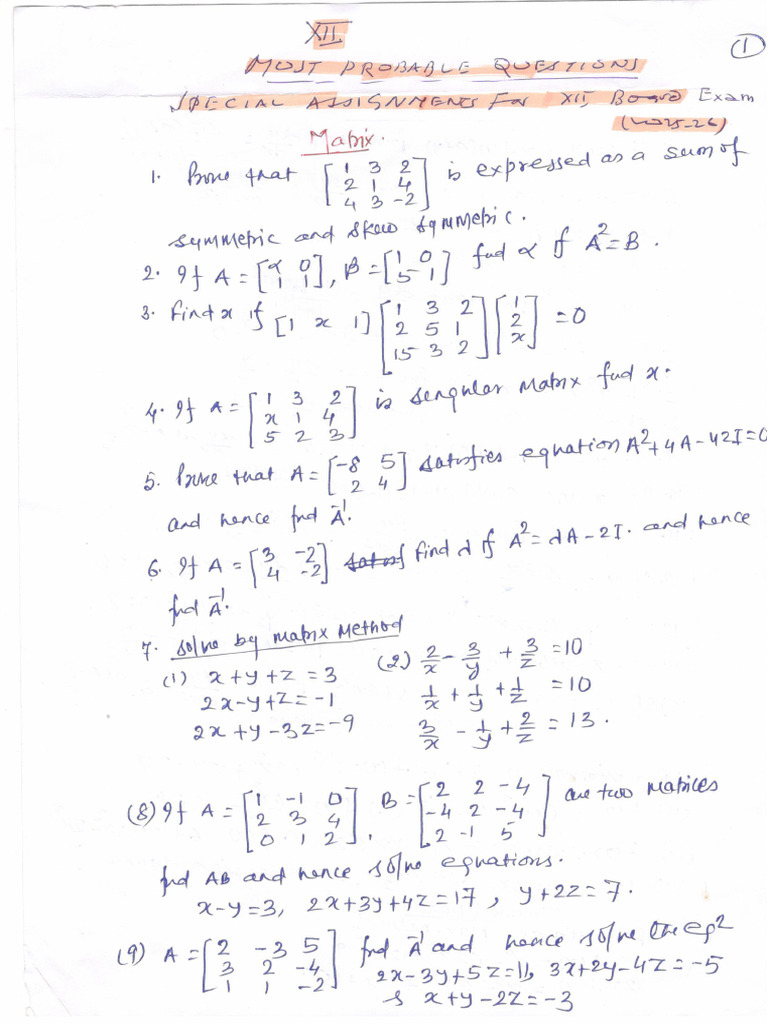 XII.
①
MOST PROBABLE QUESTIONS
SPECIAL ASSIGNMENTS For XII, Board Exam
(2025-26)
Matrix.
1. Prove that [1 3 2; 2 1 4; 4 3 -2] is expressed as a sum of
symmetric and skew symmetric.
2. If A = [α 0; 1 1], B = [1 0; 5 1] find α if A² = B.
3. Find x if [1 x 1] [1 3 2; 2 5 1; 15 3 2] [1; 2; x] = 0
4. If A = [1 3 2; x 1 4; 5 2 3] is sengular matrix find x.
5. Prove that A = [-8 5; 2 4] satisfies equation A² + 4A - 42I = 0
and hence find A⁻¹.
6. If A = [3 -2; 4 -2] find λ if A² = λA - 2I. and hence
find A⁻¹.
7. solve by matrix Method
(1) x + y + z = 3
2x - y + z = -1
2x + y - 3z = -9
(2) 2/x - 3/y + 3/z = 10
1/x + 1/y + 1/z = 10
3/x - 1/y + 2/z = 13.
(8) If A = [1 -1 0; 2 3 4; 0 1 2], B = [2 2 -4; -4 2 -4; 2 -1 5] are two matices
find AB and hence solve equations.
x - y = 3, 2x + 3y + 4z = 17, y + 2z = 7.
(9) A = [2 -3 5; 3 2 -4; 1 1 -2] find A⁻¹ and hence solve the eqⁿ
2x - 3y + 5z = 11, 3x + 2y - 4z = -5
& x + y - 2z = -3